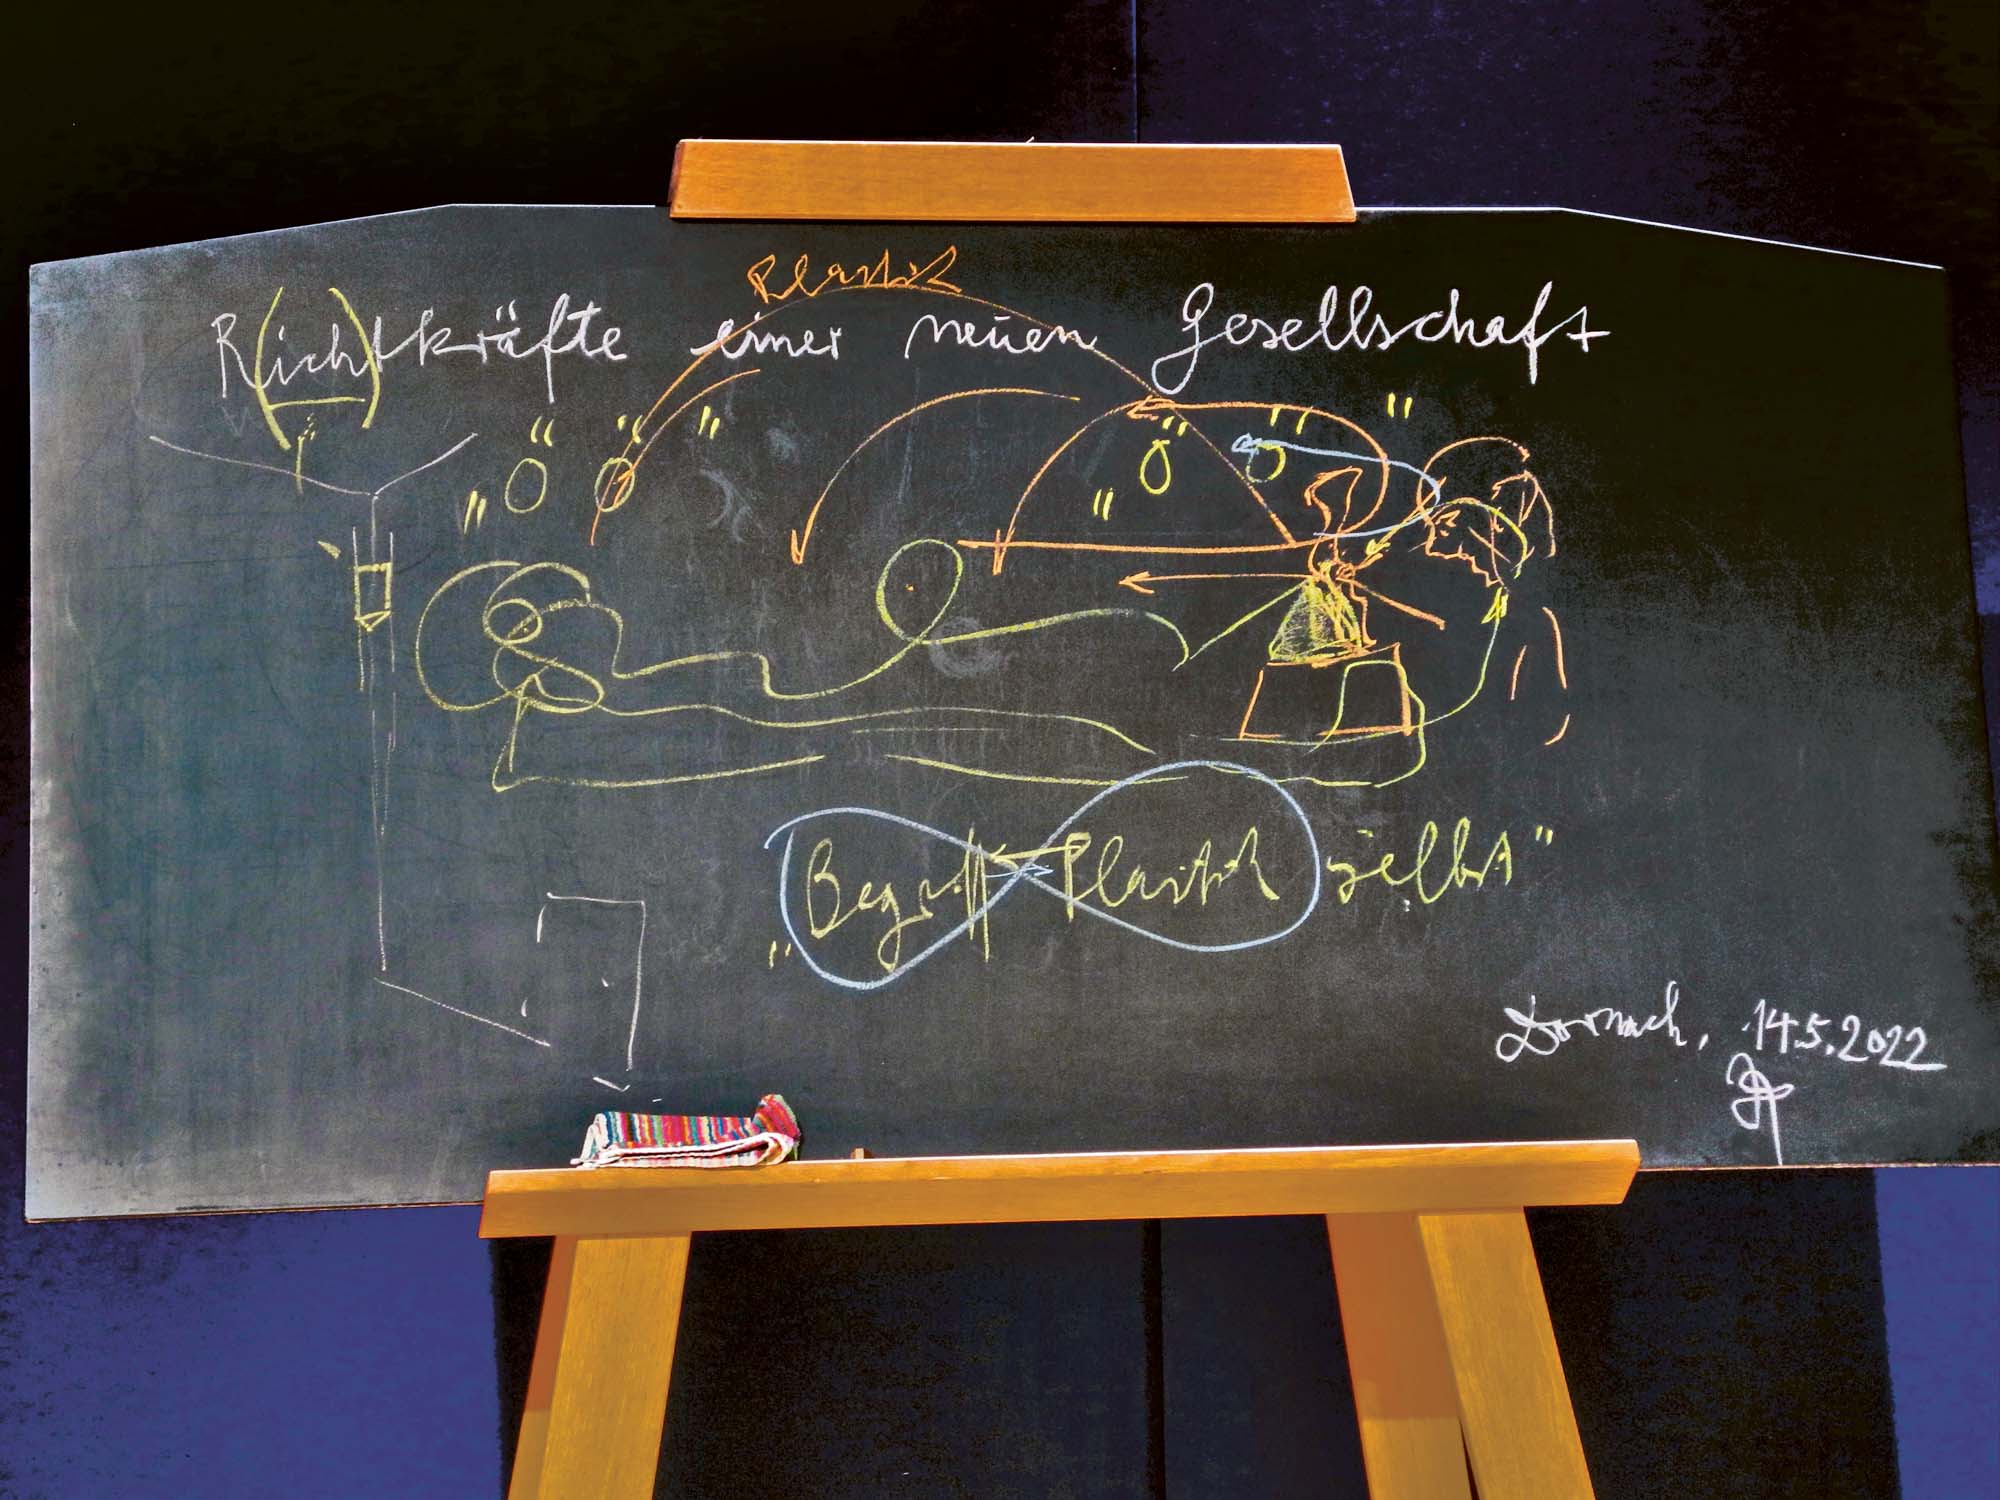 Plastik
R(ich)tkräfte einer neuen Gesellschaft
"Begriff Plastik selbst"
Dornach, 14.5.2022